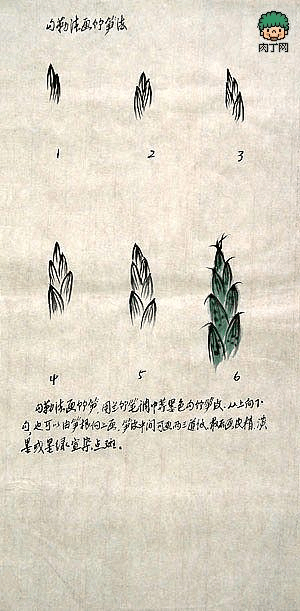 肉丁网
勾勒法画竹笋法
1 2 3
4 5 6
勾勒法画竹笋,用兰竹笔调中等墨色勾竹笋皮,从上向下
勾,也可以由笋根向上画,笋皮中间可画两三道线,最后画皮梢,淡
墨或墨绿色染,点斑。